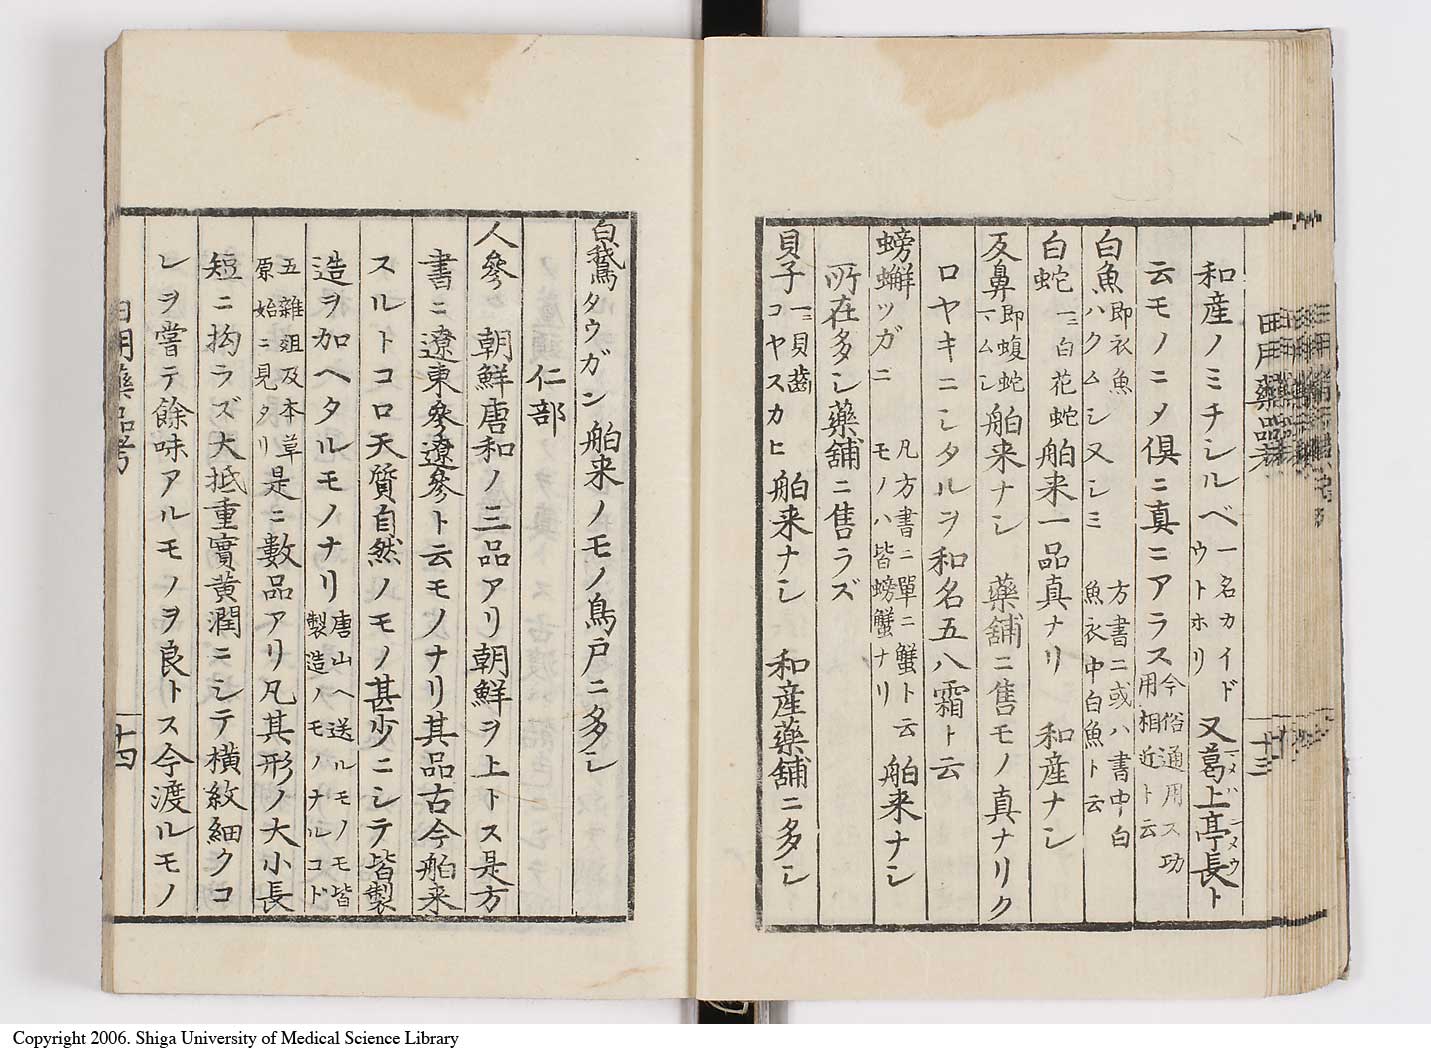 和産ノミチシルベ一名カイドウトホリ又葛上亭長ト
云モノニメ倶ニ真ニアラス今俗通用ス功用相近ト云
白魚即衣魚ハクムシ又シミ 方書ニ或ハ書中白魚衣中白魚ト云
白蛇一ニ白花蛇 舶来一品真ナリ 和産ナシ
反鼻即蝮蛇マムシ 舶来ナシ 薬舗ニ售モノ真ナリク
ロヤキニシタルヲ和名五八霜ト云
螃蠏ツガニ 凡方書ニ單ニ蟹ト云モノハ皆螃蟹ナリ 舶来ナシ
所在多シ藥舗ニ售ラズ
貝子一ニ貝齒コヤスカヒ 舶来ナシ 和産藥舗ニ多シ
白鵞タウガン 舶来ノモノ鳥戸ニ多シ
仁部
人參 朝鮮唐和ノ三品アリ朝鮮ヲ上トス是方
書ニ遼東參遼參ト云モノナリ其品古今舶来
スルトコロ天質自然ノモノ甚少ニシテ皆製
造ヲ加ヘタルモノナリ唐山ヘ送ルモノモ皆製造ノモノナルコト
五雜俎及本草原始ニ見タリ是ニ數品アリ凡其形ノ大小長
短ニ拘ラズ大抵重實黄潤ニシテ横紋細クコ
レヲ嘗テ餘味アルモノヲ良トス今渡ルモノ
日用藥品考
十四
Copyright 2006. Shiga University of Medical Science Library